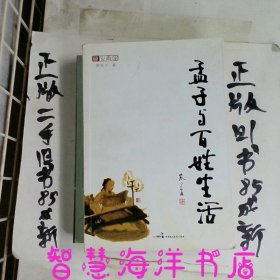 孟子与百姓生活
正版二手旧书85成新
正版旧书85成新
智慧海洋书店